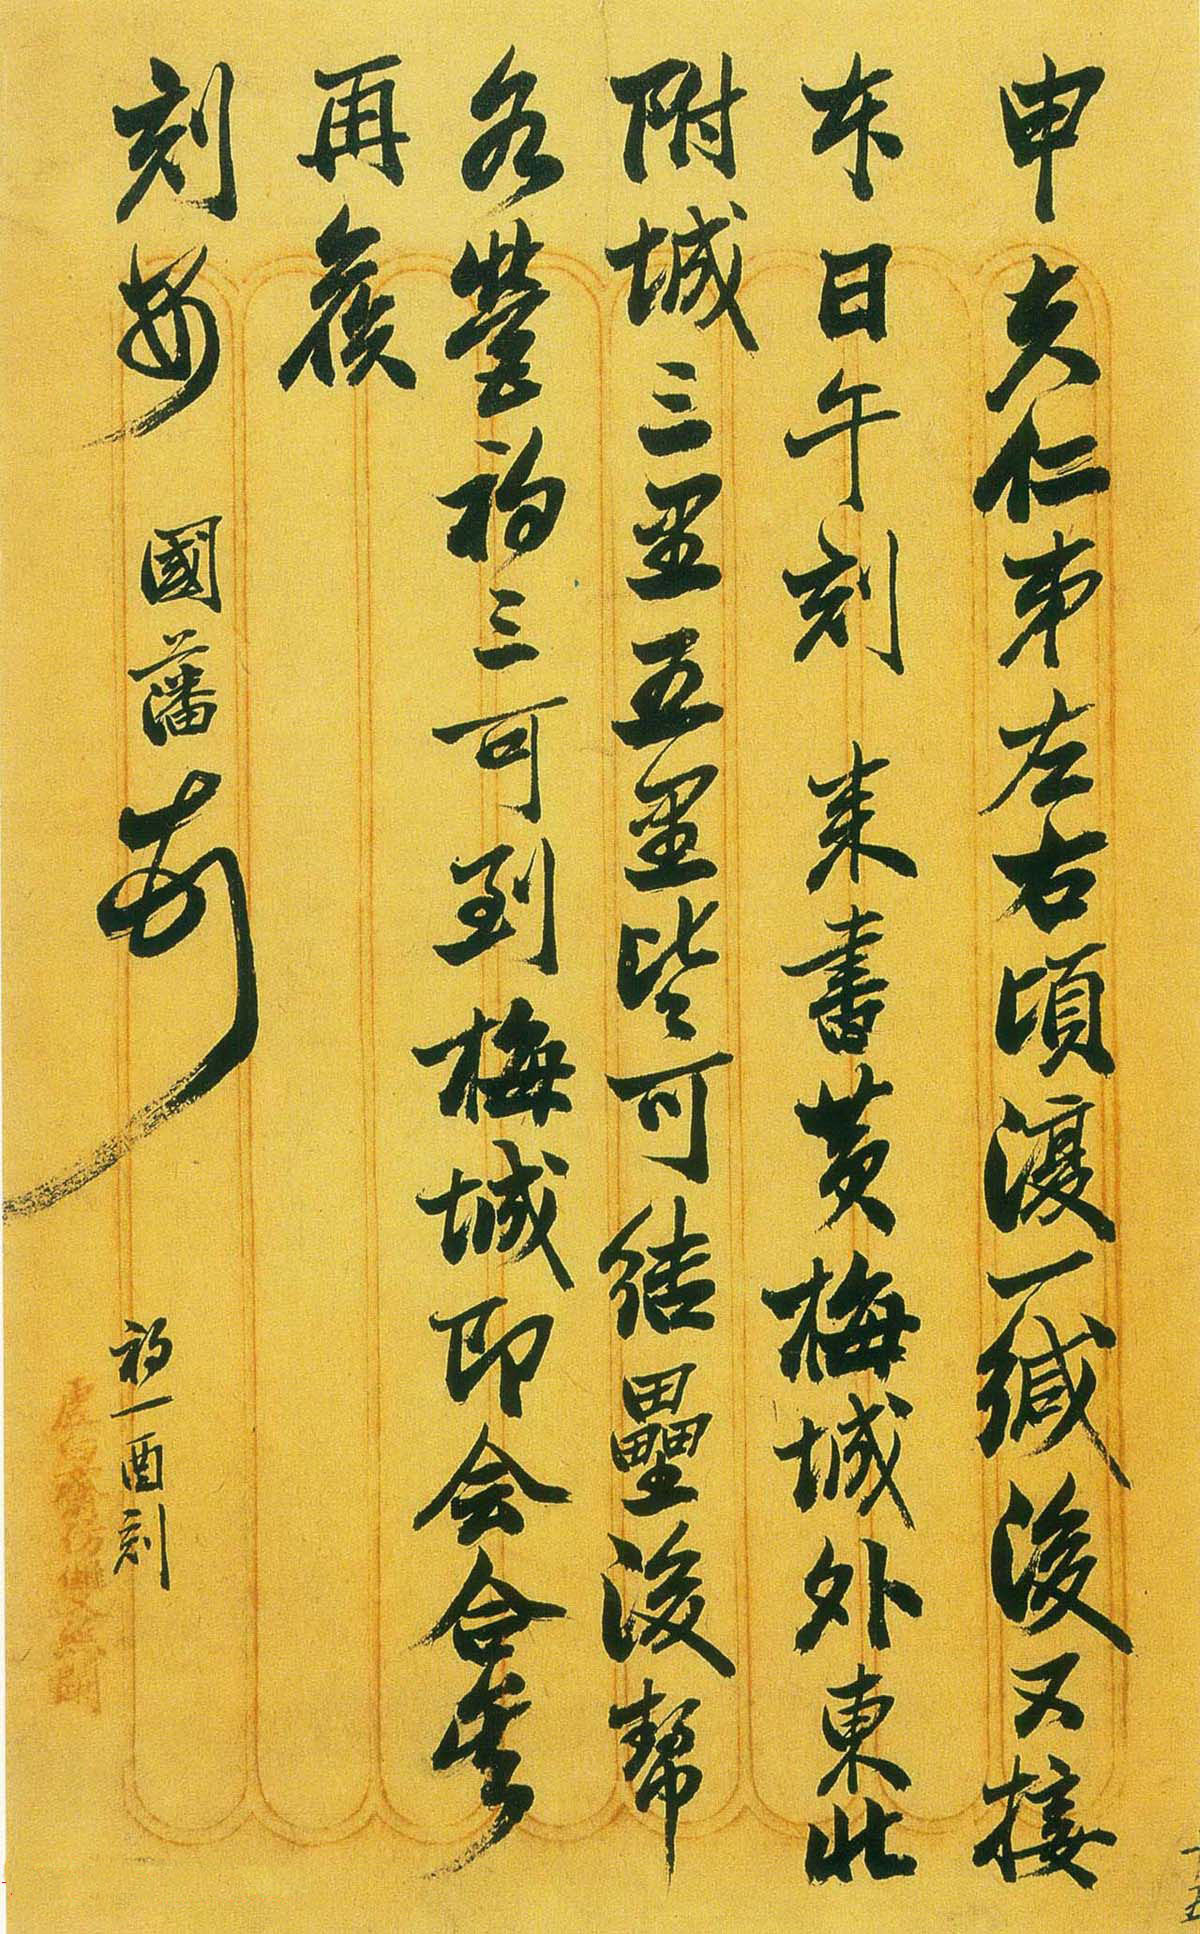 申夫仁弟左右頃復一緘後又接
本日午刻 来書黄梅城外東北
附城三里五里皆可结壘後幫
各營初三可到梅城即会合矣
再候
刻安 國藩
初一酉刻
十五